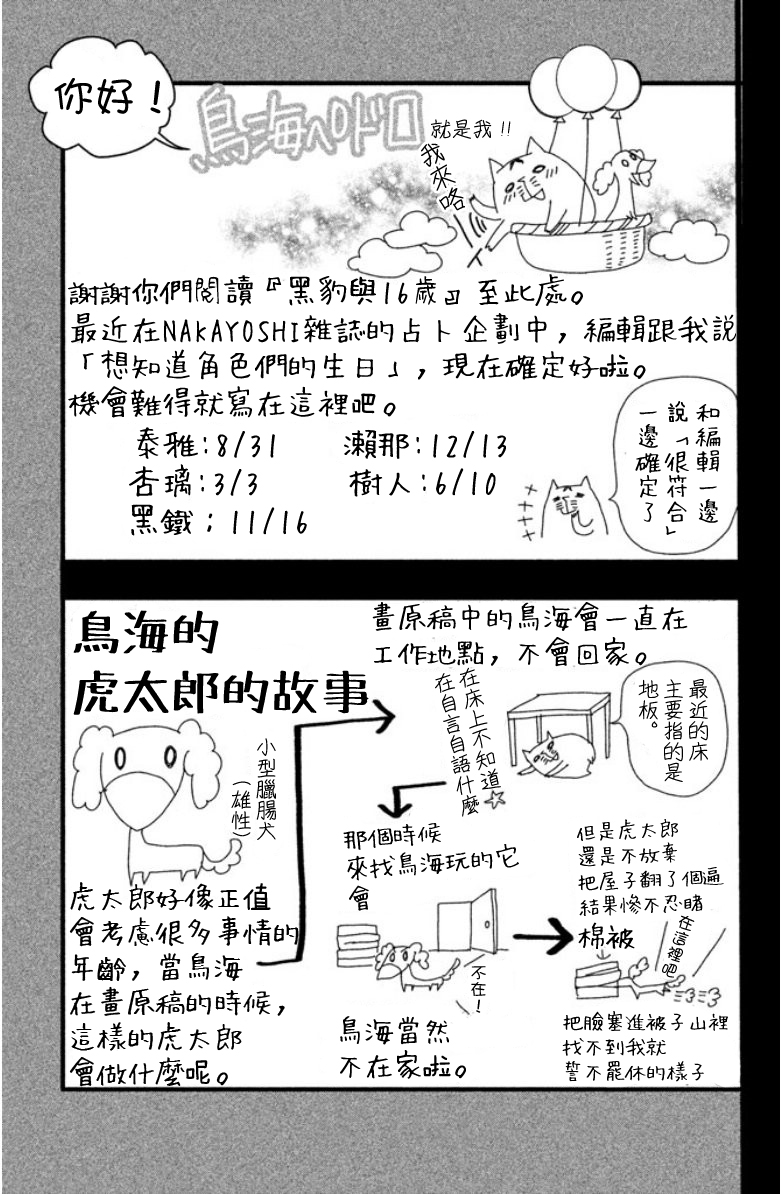 你好！
鳥海ペドロ
就是我!!
我來咯
謝謝你們閱讀『黑豹與16歲』至此處。
最近在NAKAYOSHI雜誌的占卜企劃中，編輯跟我說
「想知道角色們的生日」，現在確定好啦。
機會難得就寫在這裡吧。
泰雅:8/31
瀨那:12/13
杏璃:3/3
樹人:6/10
黑鐵；11/16
和編輯一邊
說「很符合」
一邊確定了
鳥海的
虎太郎的故事
小型臘腸犬
(雄性)
虎太郎好像正值
會考慮很多事情的
年齡，當鳥海
在畫原稿的時候，
這樣的虎太郎
會做什麼呢。
畫原稿中的鳥海會一直在
工作地點，不會回家。
在床上不知道
在自言自語什麼☆
最近的床
主要指的是
地板。
那個時候
來找鳥海玩的它
會
不在！
鳥海當然
不在家啦。
但是虎太郎
還是不放棄
把屋子翻了個遍
結果慘不忍睹
棉被
在這裡吧
把臉塞進被子山裡
找不到我就
誓不罷休的樣子